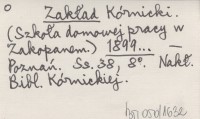 Zakład Kórnicki.
(Szkoła domowej pracy w
Zakopanem.) 1899... —
Poznań. Ss. 38, 8°. Nakł.
Bibl. Kórnickiej.